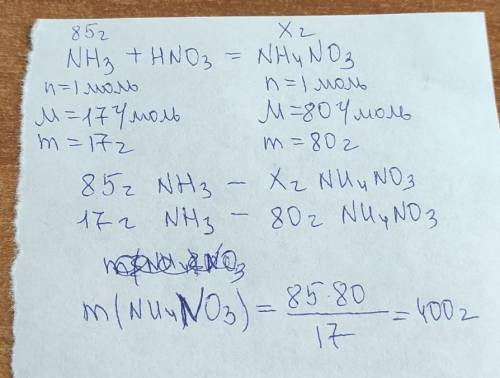 85г Xг
NH3 + HNO3 = NH4NO3
n=1моль n=1моль
M=17г/моль M=80г/моль
m=17г m=80г
85г NH3 – Xг NH4NO3
17г NH3 – 80г NH4NO3
m(NH4NO3) = 85·80 / 17 = 400г